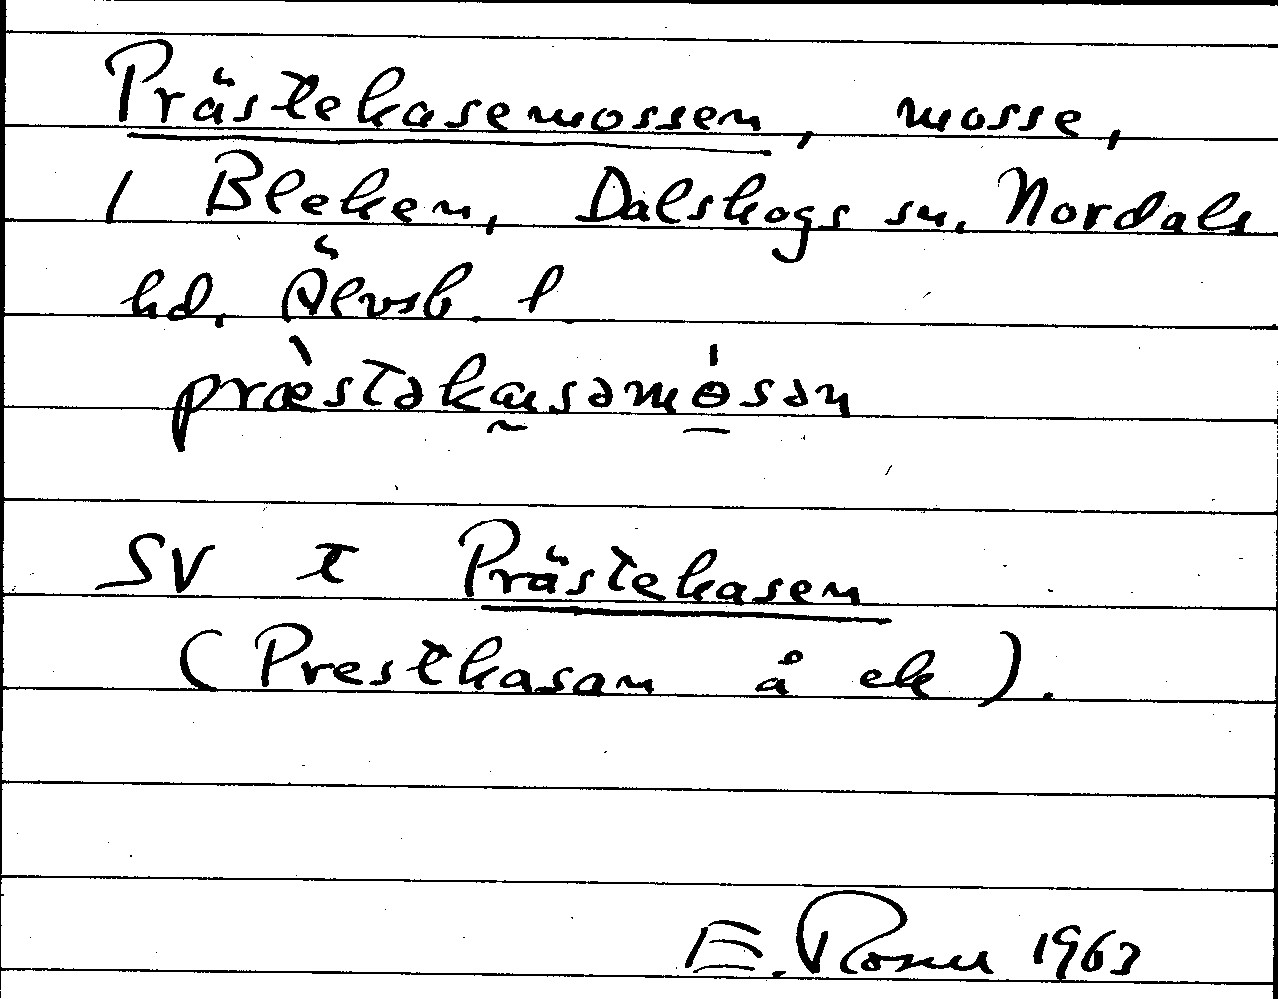 Prästekasemossen, mosse,
1 Bleken, Dalskogs sn, Nordals
hd, Älvsb. l.
præ̀stəkɑsəmɵ́sən
SV t Prästekasen
(Prestkasan å ek).
E. Rosell 1963